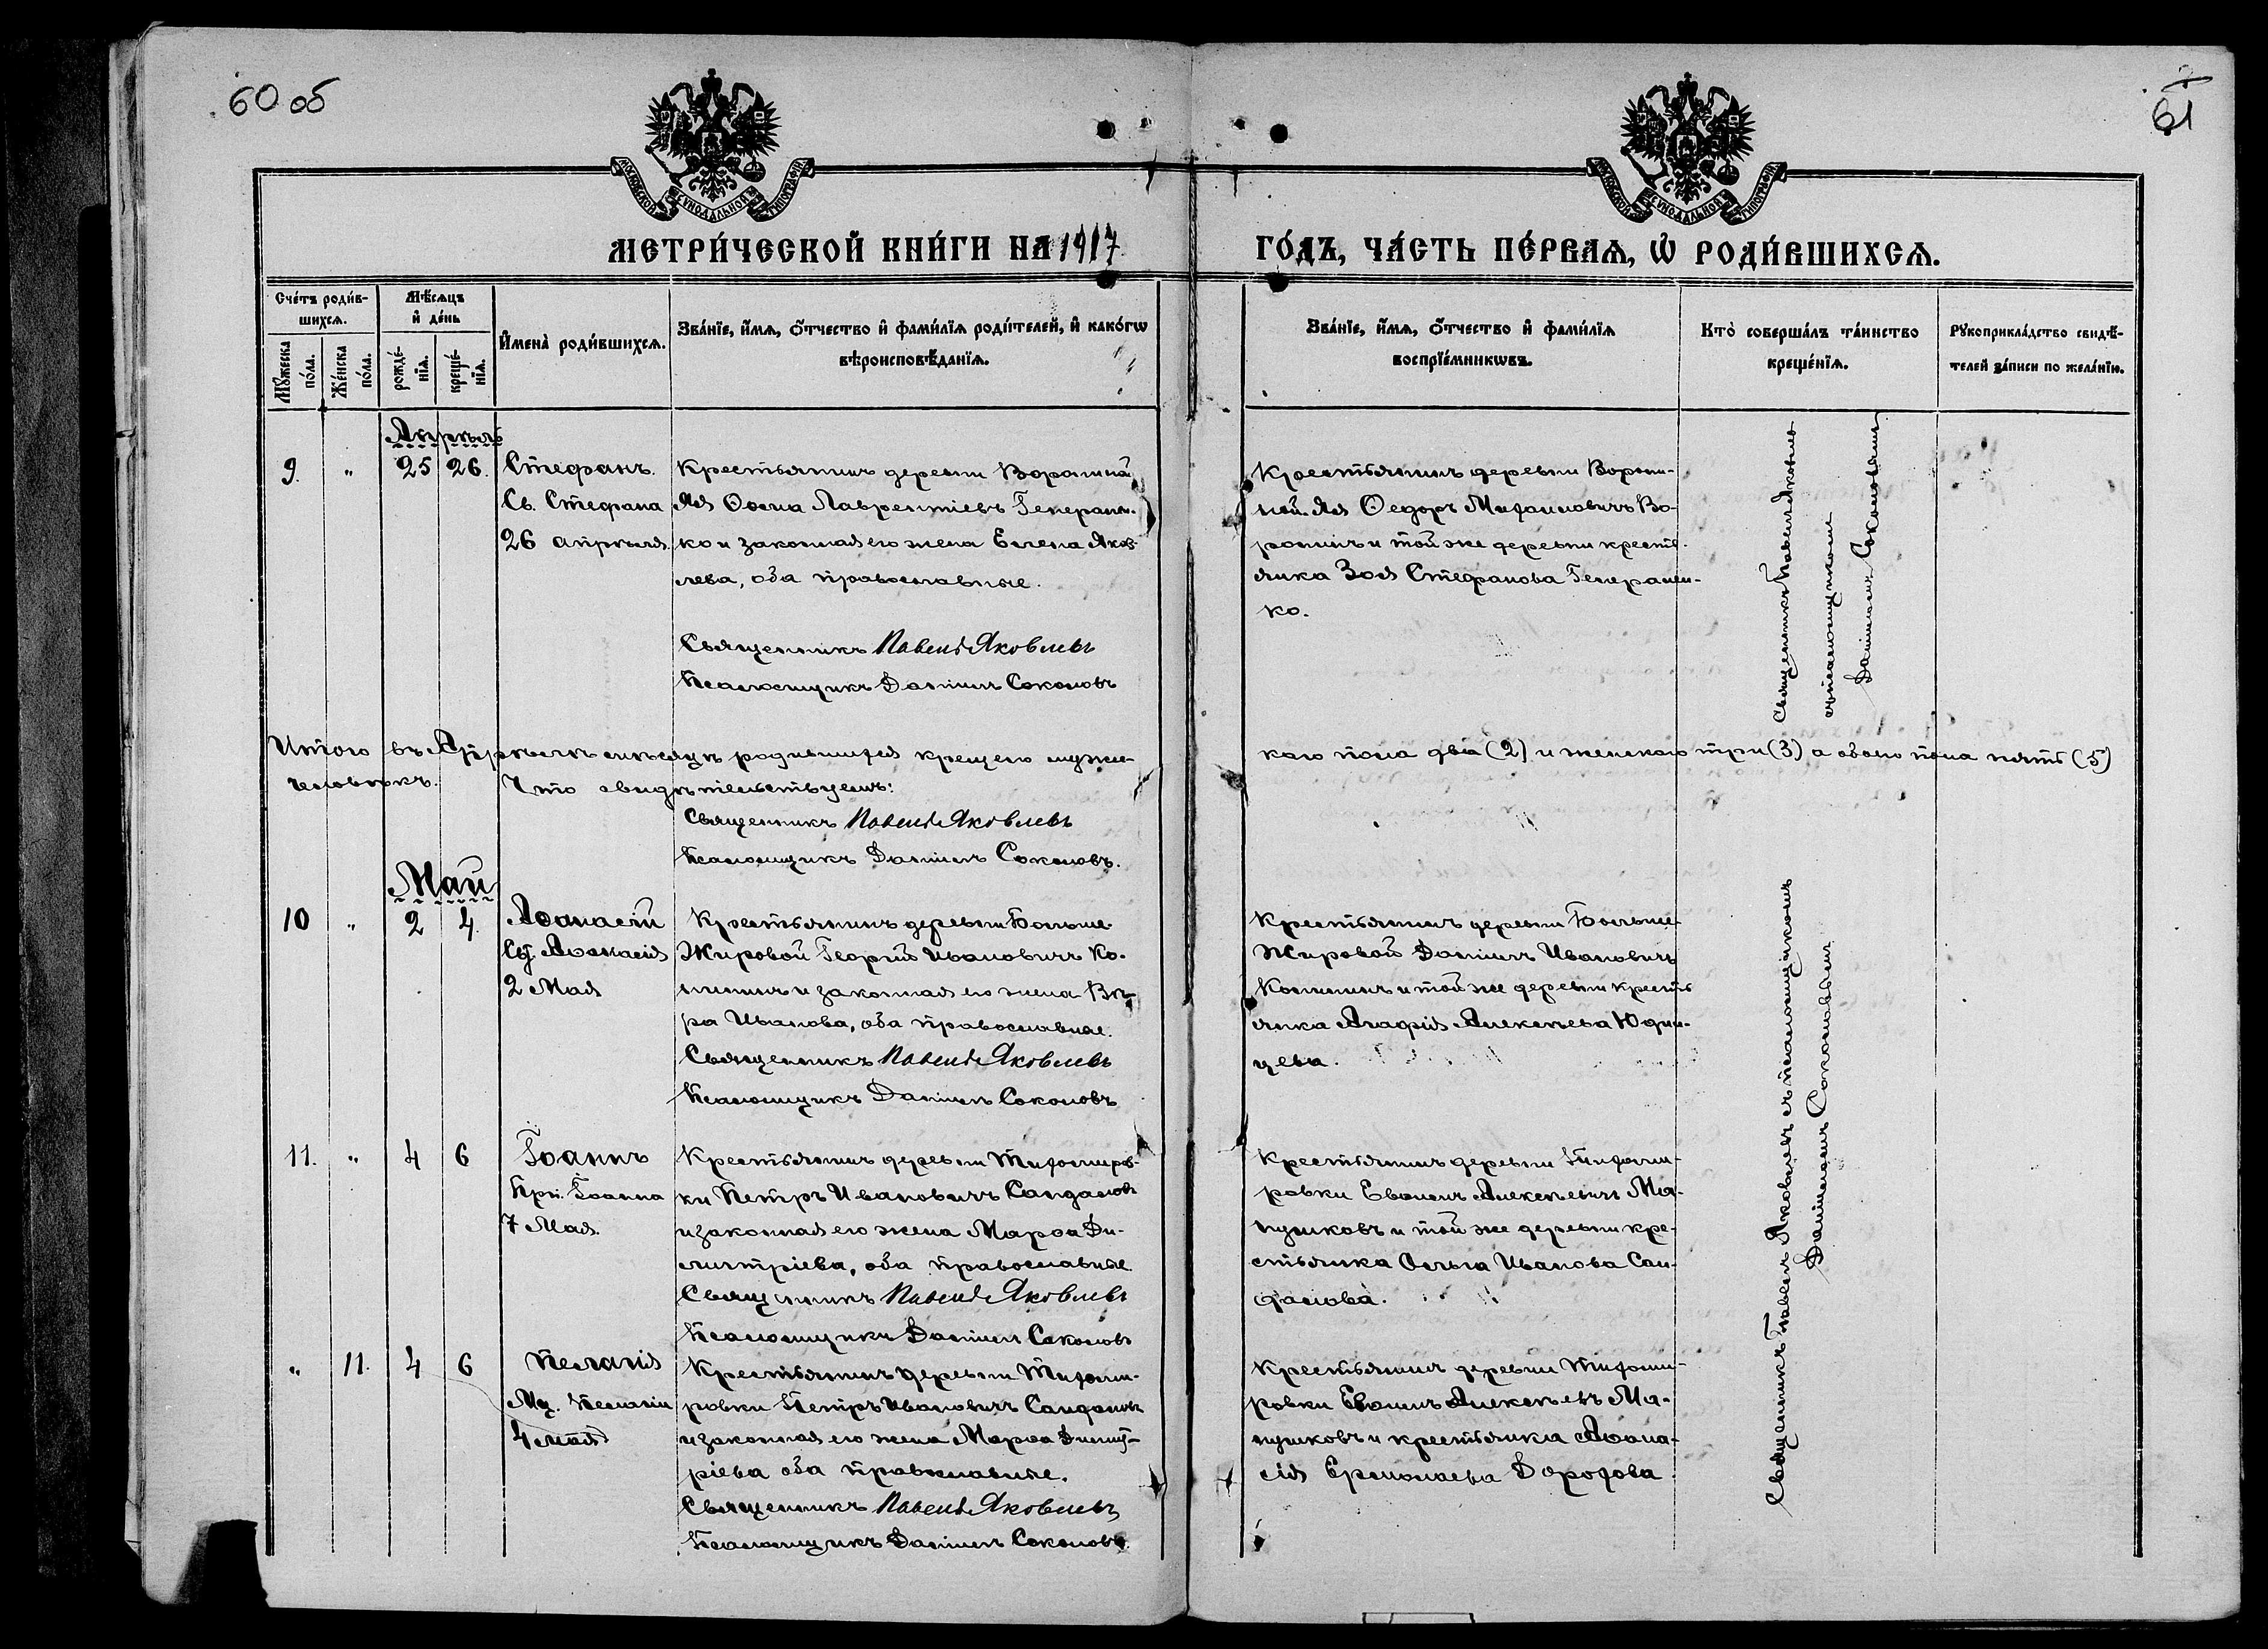 60 об
61
МОСКОВСКОЙ СѴНОДАЛЬНОЙ ТИПОГРАФІИ
МОСКОВСКОЙ СѴНОДАЛЬНОЙ ТИПОГРАФІИ
МЕТРИ́ЧЕСКОЙ КНИ́ГИ НА 1917
ГО́ДЪ, ЧА́СТЬ ПЕ́РВАѦ, Ѡ҆ РОДИ́ВШИХСѦ.
Сче́тъ роди́в-
шихсѧ.
Мꙋ́жеска по́ла.
Же́нска по́ла.
Мѣ́сѧцъ
и҆ де́нь
рожде́-
нїѧ.
креще́-
нїѧ.
И҆мена̀ роди́вшихсѧ.
Зва́нїе, и҆́мѧ, ѻ҆́тчество и҆ фами́лїѧ роди́телей, и҆ како́гѡ
вѣроисповѣ́данїѧ.
Зва́нїе, и҆́мѧ, ѻ҆́тчество и҆ фами́лїѧ
воспрїе́мникѡвъ.
Кто̀ соверша́лъ та́инство
креще́нїѧ.
Рꙋкоприкла́дство свидѣ́-
телей за́писи по жела́нїю.
Апрѣль
9. " 25 26.
Стефанъ.
Св. Стефана
26 апрѣля.
Крестьянинъ деревни
Ѳома Лаврентіевъ Генерален-
ко и законная его жена Елена Яков-
лева, оба православные.
Священникъ Павелъ Яковлевъ
Псаломщикъ Даніилъ Соколовъ
Крестьянинъ деревни Ворони-
Ѳедоръ Митрофановичъ Во-
ронинъ и той же деревни кресть-
янка Зоя Стефанова Генерален-
ко.
Священникъ Павелъ Яковлевъ
съ псаломщикомъ
Даніиломъ Соколовымъ
Итого въ Апрѣлѣ мѣсяцѣ родившихся крещено мужес-
каго пола два (2) и женскаго три (3) а обоего пола пять (5)
человѣкъ. Что свидѣтельствуемъ:
Священникъ Павелъ Яковлевъ
Псаломщикъ Даніилъ Соколовъ.
Май
10 " 2 4.
Аѳанасій
Св. Аѳанасія
2 Мая
Крестьянинъ деревни Больше-
Жировой Георгій Ивановичъ Ко-
и законная его жена Вѣ-
ра Иванова, оба православные.
Священникъ Павелъ Яковлевъ
Псаломщикъ Даніилъ Соколовъ
Крестьянинъ деревни Больше-
Жировой Даніилъ Ивановичъ
и той же деревни кресть-
янка Агафія Алексѣева Юдин-
цева.
11. " 4 6
Іоаннъ
Прп. Іоанна
7 Мая.
Крестьянинъ деревни
ки Петръ Ивановичъ Сандаловъ
и законная его жена Марѳа Ди-
митріева, оба православные
Священникъ Павелъ Яковлевъ
Псаломщикъ Даніилъ Соколовъ
Крестьянинъ деревни
ровки Алексѣевичъ Мя-
кушковъ и той же деревни кре-
стьянка Ольга Иванова Сан-
далова.
" 11. 4 6
Пелагія
Мц. Пелагіи
4 мая
Крестьянинъ деревни
ровки Петръ Ивановичъ Сандаловъ
и законная его жена Марѳа Димит-
ріева оба православные.
Священникъ Павелъ Яковлевъ
Псаломщикъ Даніилъ Соколовъ.
Крестьянинъ деревни
ровки Алексѣевъ Мя-
кушковъ и крестьянка Аѳана-
сія Ермолаева Дорофова.
Священникъ Павелъ Яковлевъ съ псаломщикомъ
Даніиломъ Соколовымъ